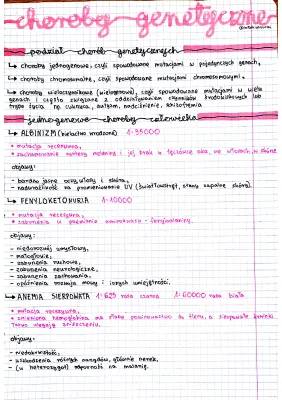 choroby genetyczne
podział chorób genetycznych
↳ choroby jednogenowe, czyli spowodowane mutacjami w pojedynczych genach,
↳ choroby chromosomalne, czyli spowodowane mutacjami chromosomowymi,
↳ choroby wieloczynnikowe (wielogenowe), czyli spowodowane mutacjami w wielu
genach i często związane z oddziaływaniem czynników środowiskowych lub
trybu życia np. cukrzyca, astma, nadciśnienie, schizofrenia
jednogenowe choroby człowieka
↳ ALBINIZM (bielactwo wrodzone) 1:35000
* mutacja recesywna,
* zahamowanie syntezy melaniny i jej brak w tęczówce oka, we włosach, w skórze
objawy:
- bardzo jasne oczy, włosy i skóra,
- nadwrażliwość na promieniowanie UV (światłowstręt, stany zapalne skóry).
↳ FENYLOKETONURIA 1:10000
* mutacja recesywna,
* zaburzenia w przemianie aminokwasu - fenyloalaniny.
objawy:
- niedorozwój umysłowy,
- małogłowie,
- zaburzenia ruchowe,
- zaburzenia neurologiczne,
- zaburzenia zachowania,
- opóźnienia rozwoju mowy i innych umiejętności.
↳ ANEMIA SIERPOWATA 1:625 rasa czarna 1:60000 rasa biała
* mutacja recesywna,
* zmieniona hemoglobina ma słabe powinowactwo do tlenu, a sierpowate krwinki
łatwo ulegają zniszczeniu.
objawy:
- niedokrwistość,
- uszkodzenia różnych narządów, głównie nerek,
- (u heterozygot) odporność na malarię.